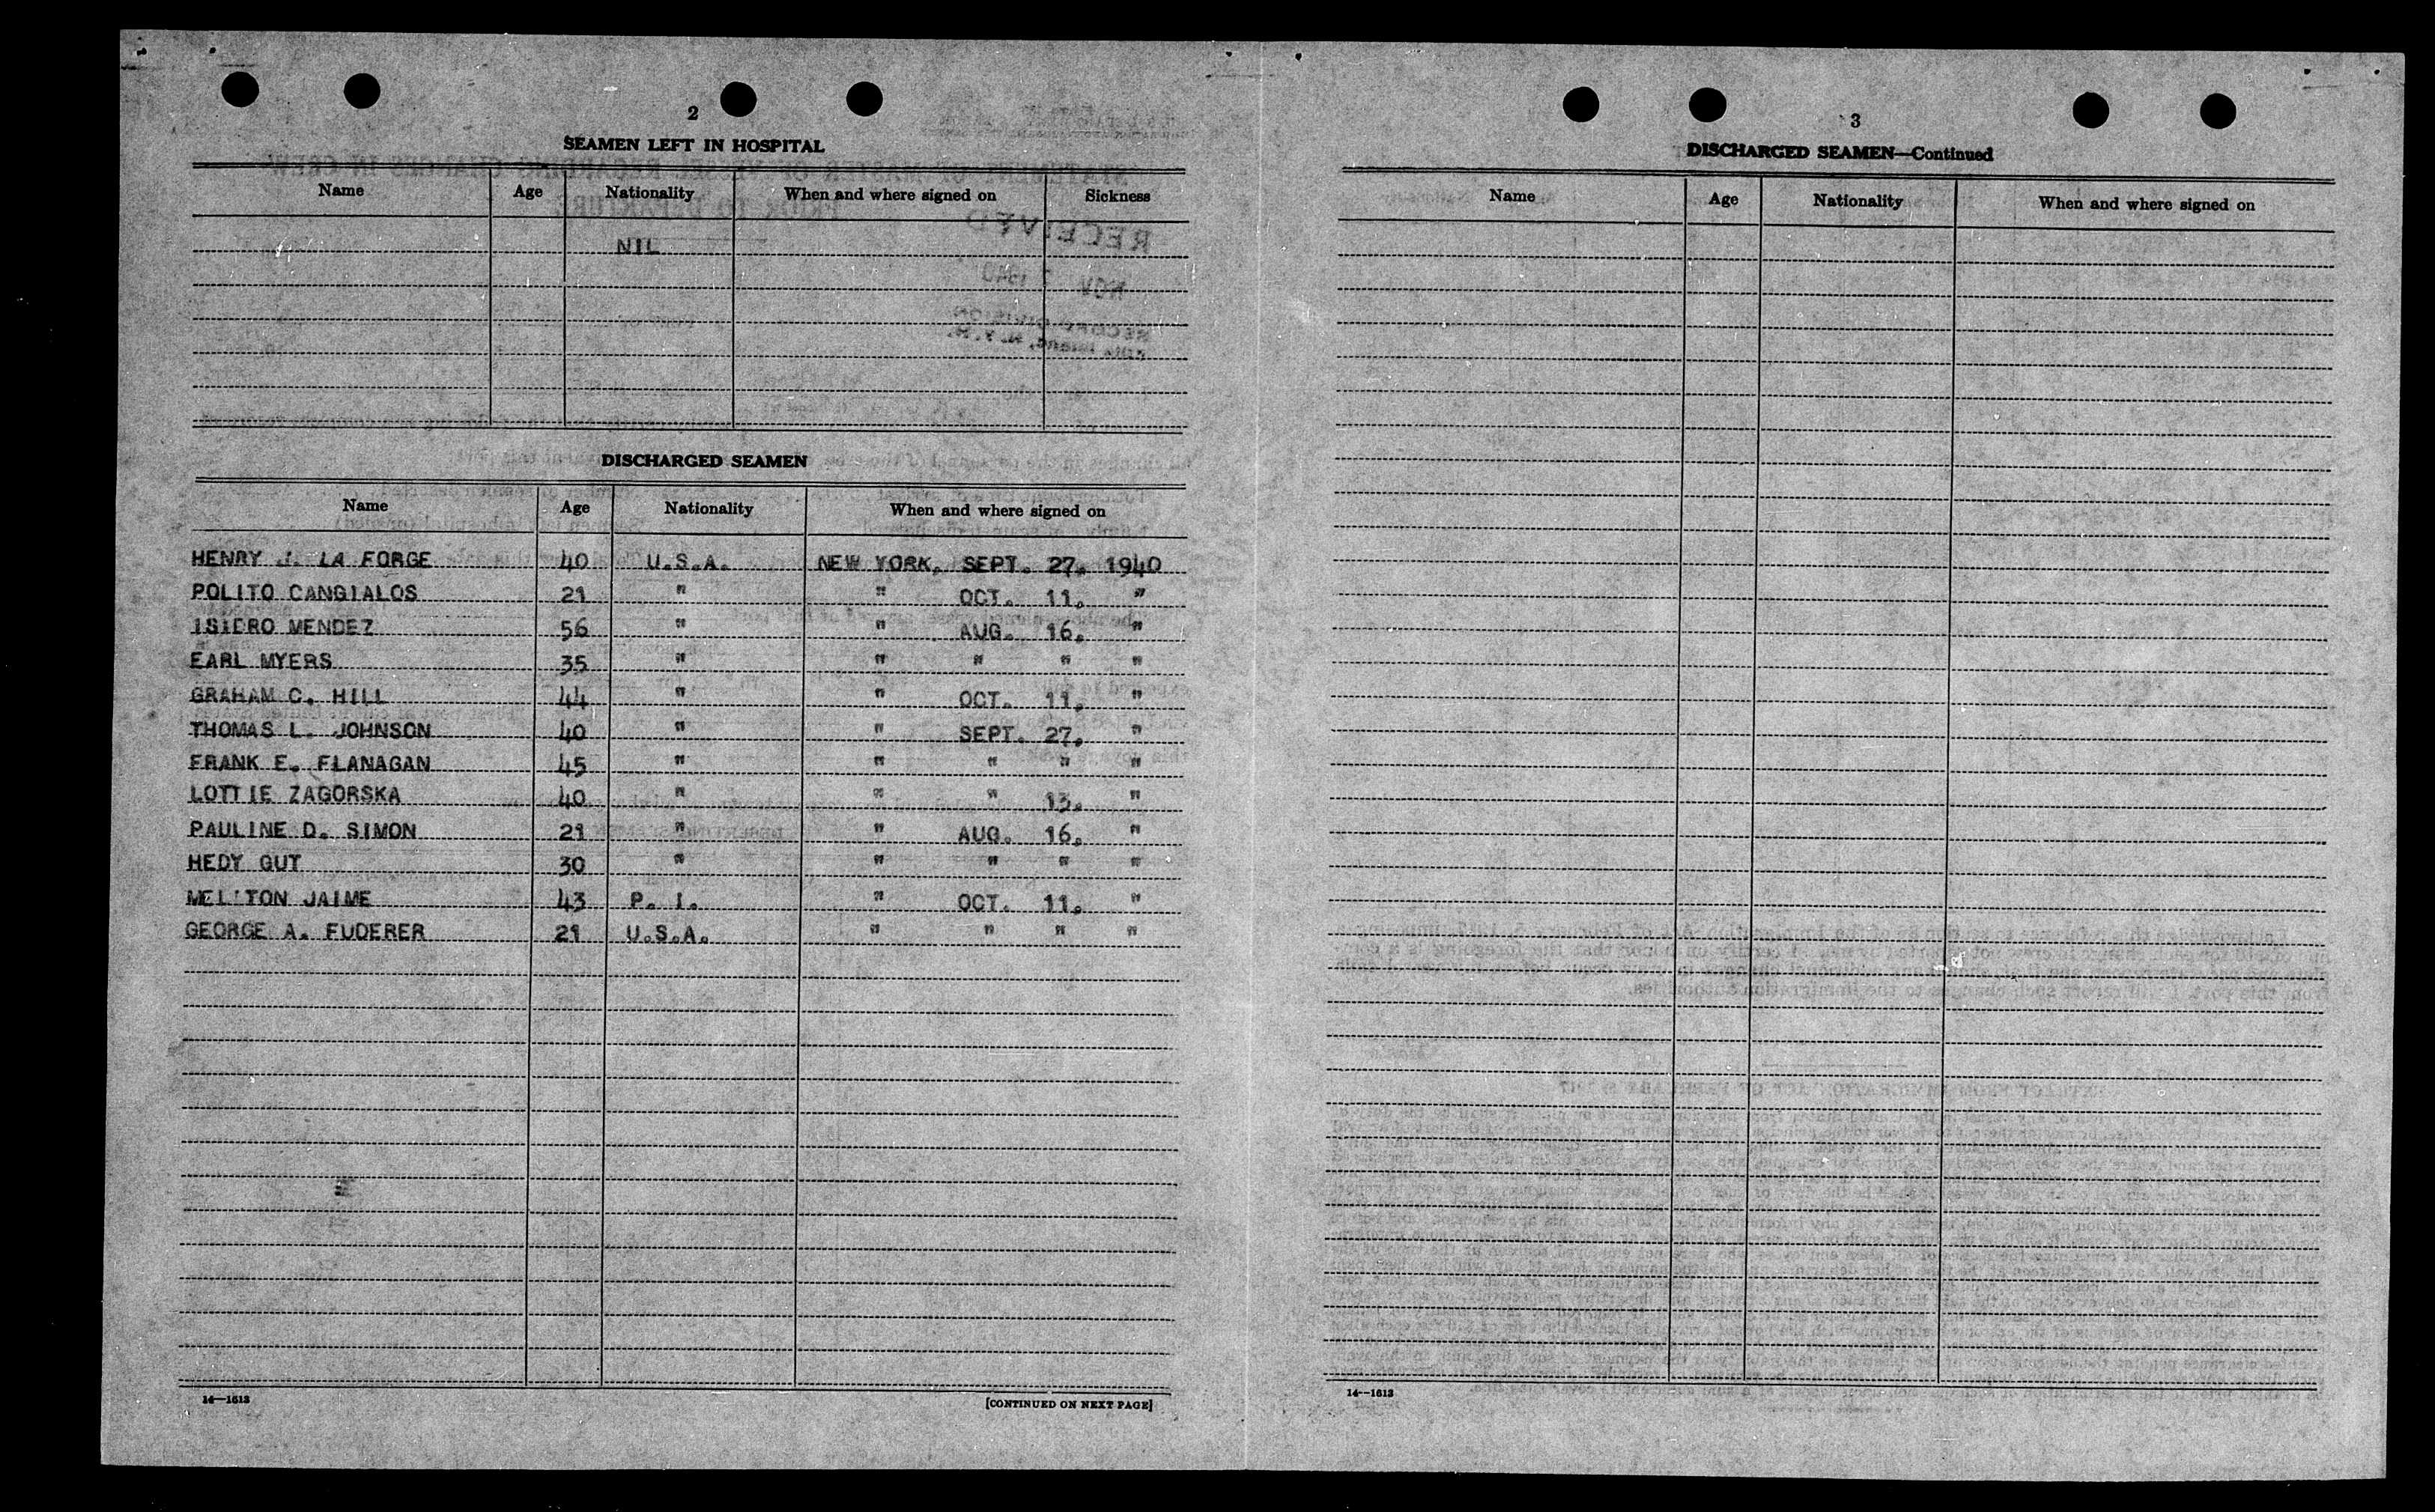 2
SEAMEN LEFT IN HOSPITAL
Name Age Nationality When and where signed on Sickness
NIL
DISCHARGED SEAMEN
Name Age Nationality When and where signed on
HENRY J. LA FORGE 40 U.S.A. NEW YORK, SEPT. 27, 1940
POLITO CANGIALOS 21 " " OCT. 11, "
ISIDRO MENDEZ 56 " " AUG. 16, "
EARL MYERS 35 " " " " "
GRAHAM C. HILL 44 " " OCT. 11, "
THOMAS L. JOHNSON 40 " " SEPT. 27, "
FRANK E. FLANAGAN 45 " " " " "
LOTTIE ZAGORSKA 40 " " " 13, "
PAULINE D. SIMON 21 " " AUG. 16, "
HEDY GUT 30 " " " " "
MELITON JAIME 43 P. I. " OCT. 11, "
GEORGE A. FUDERER 21 U.S.A. " " " "
14—1613 [CONTINUED ON NEXT PAGE]
3
DISCHARGED SEAMEN—Continued
Name Age Nationality When and where signed on
14—1613